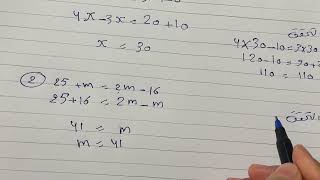 4x-3x=20+10
x=30
التحقق
4×30-10=3×30+2
120-10=90+2
110=110
② 25+m=2m-16
25+16=2m-m
41=m
m=41
التحقق